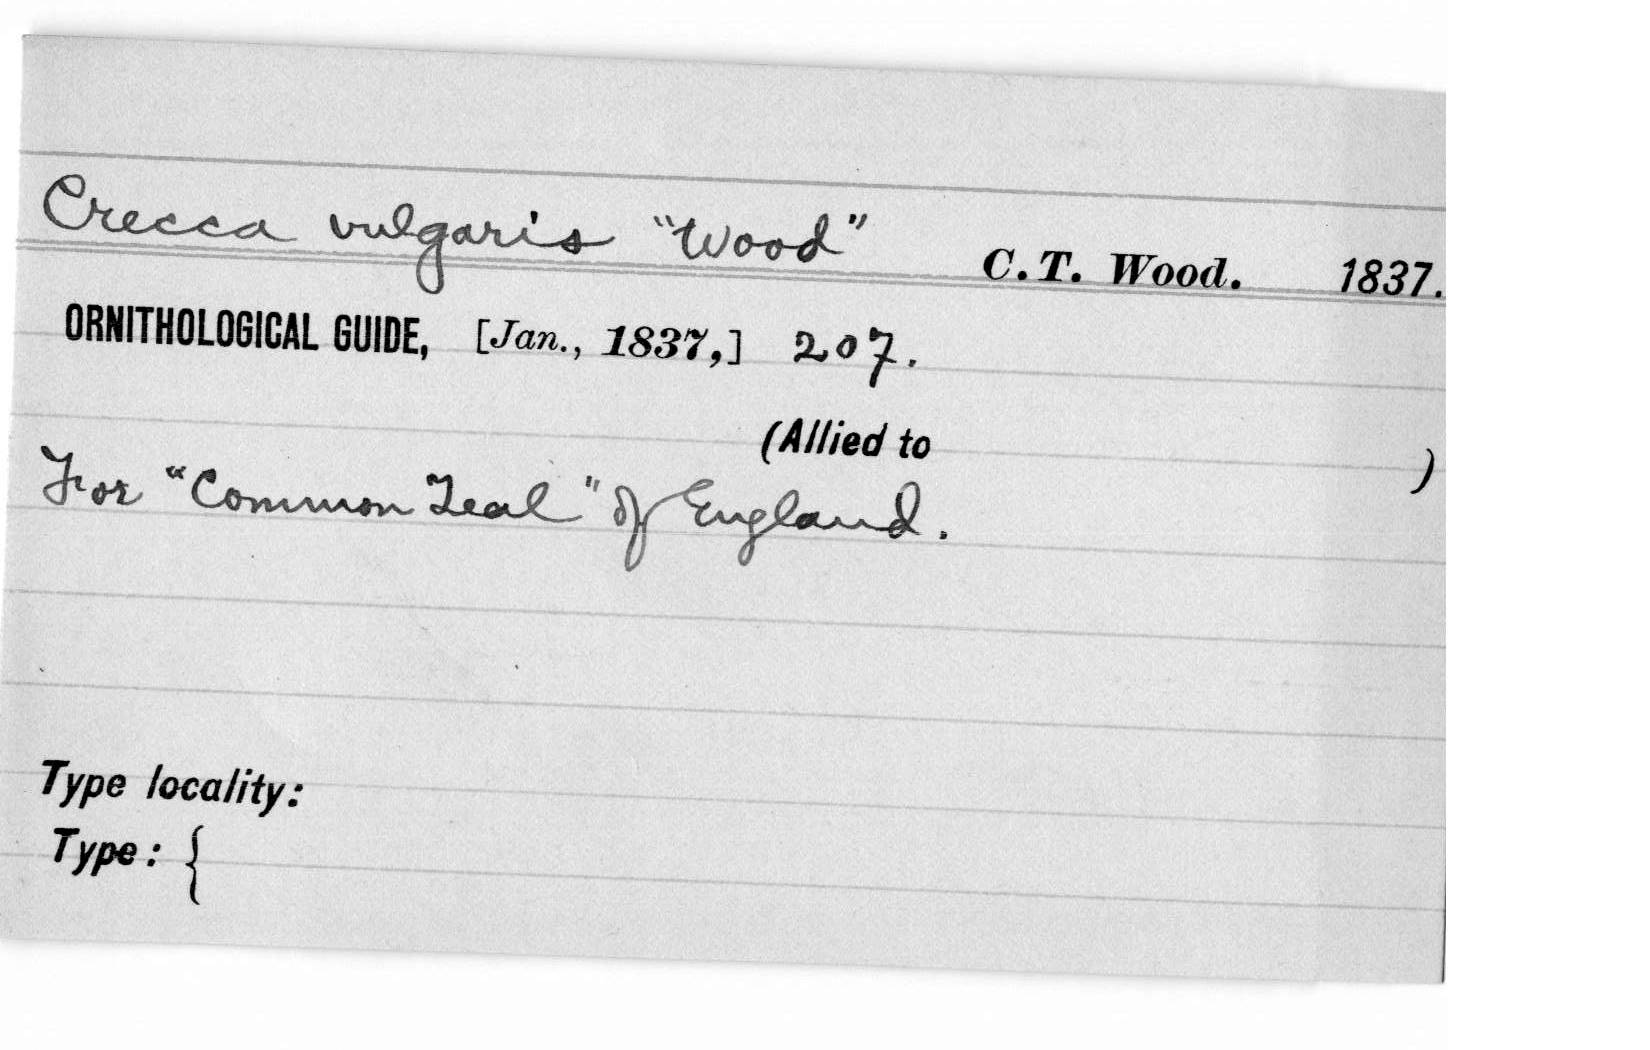 Crecca vulgaris "Wood" C. T. Wood. 1837.
ORNITHOLOGICAL GUIDE, [Jan., 1837,] 207.
(Allied to )
For "Common Teal" of England.
Type locality:
Type: {